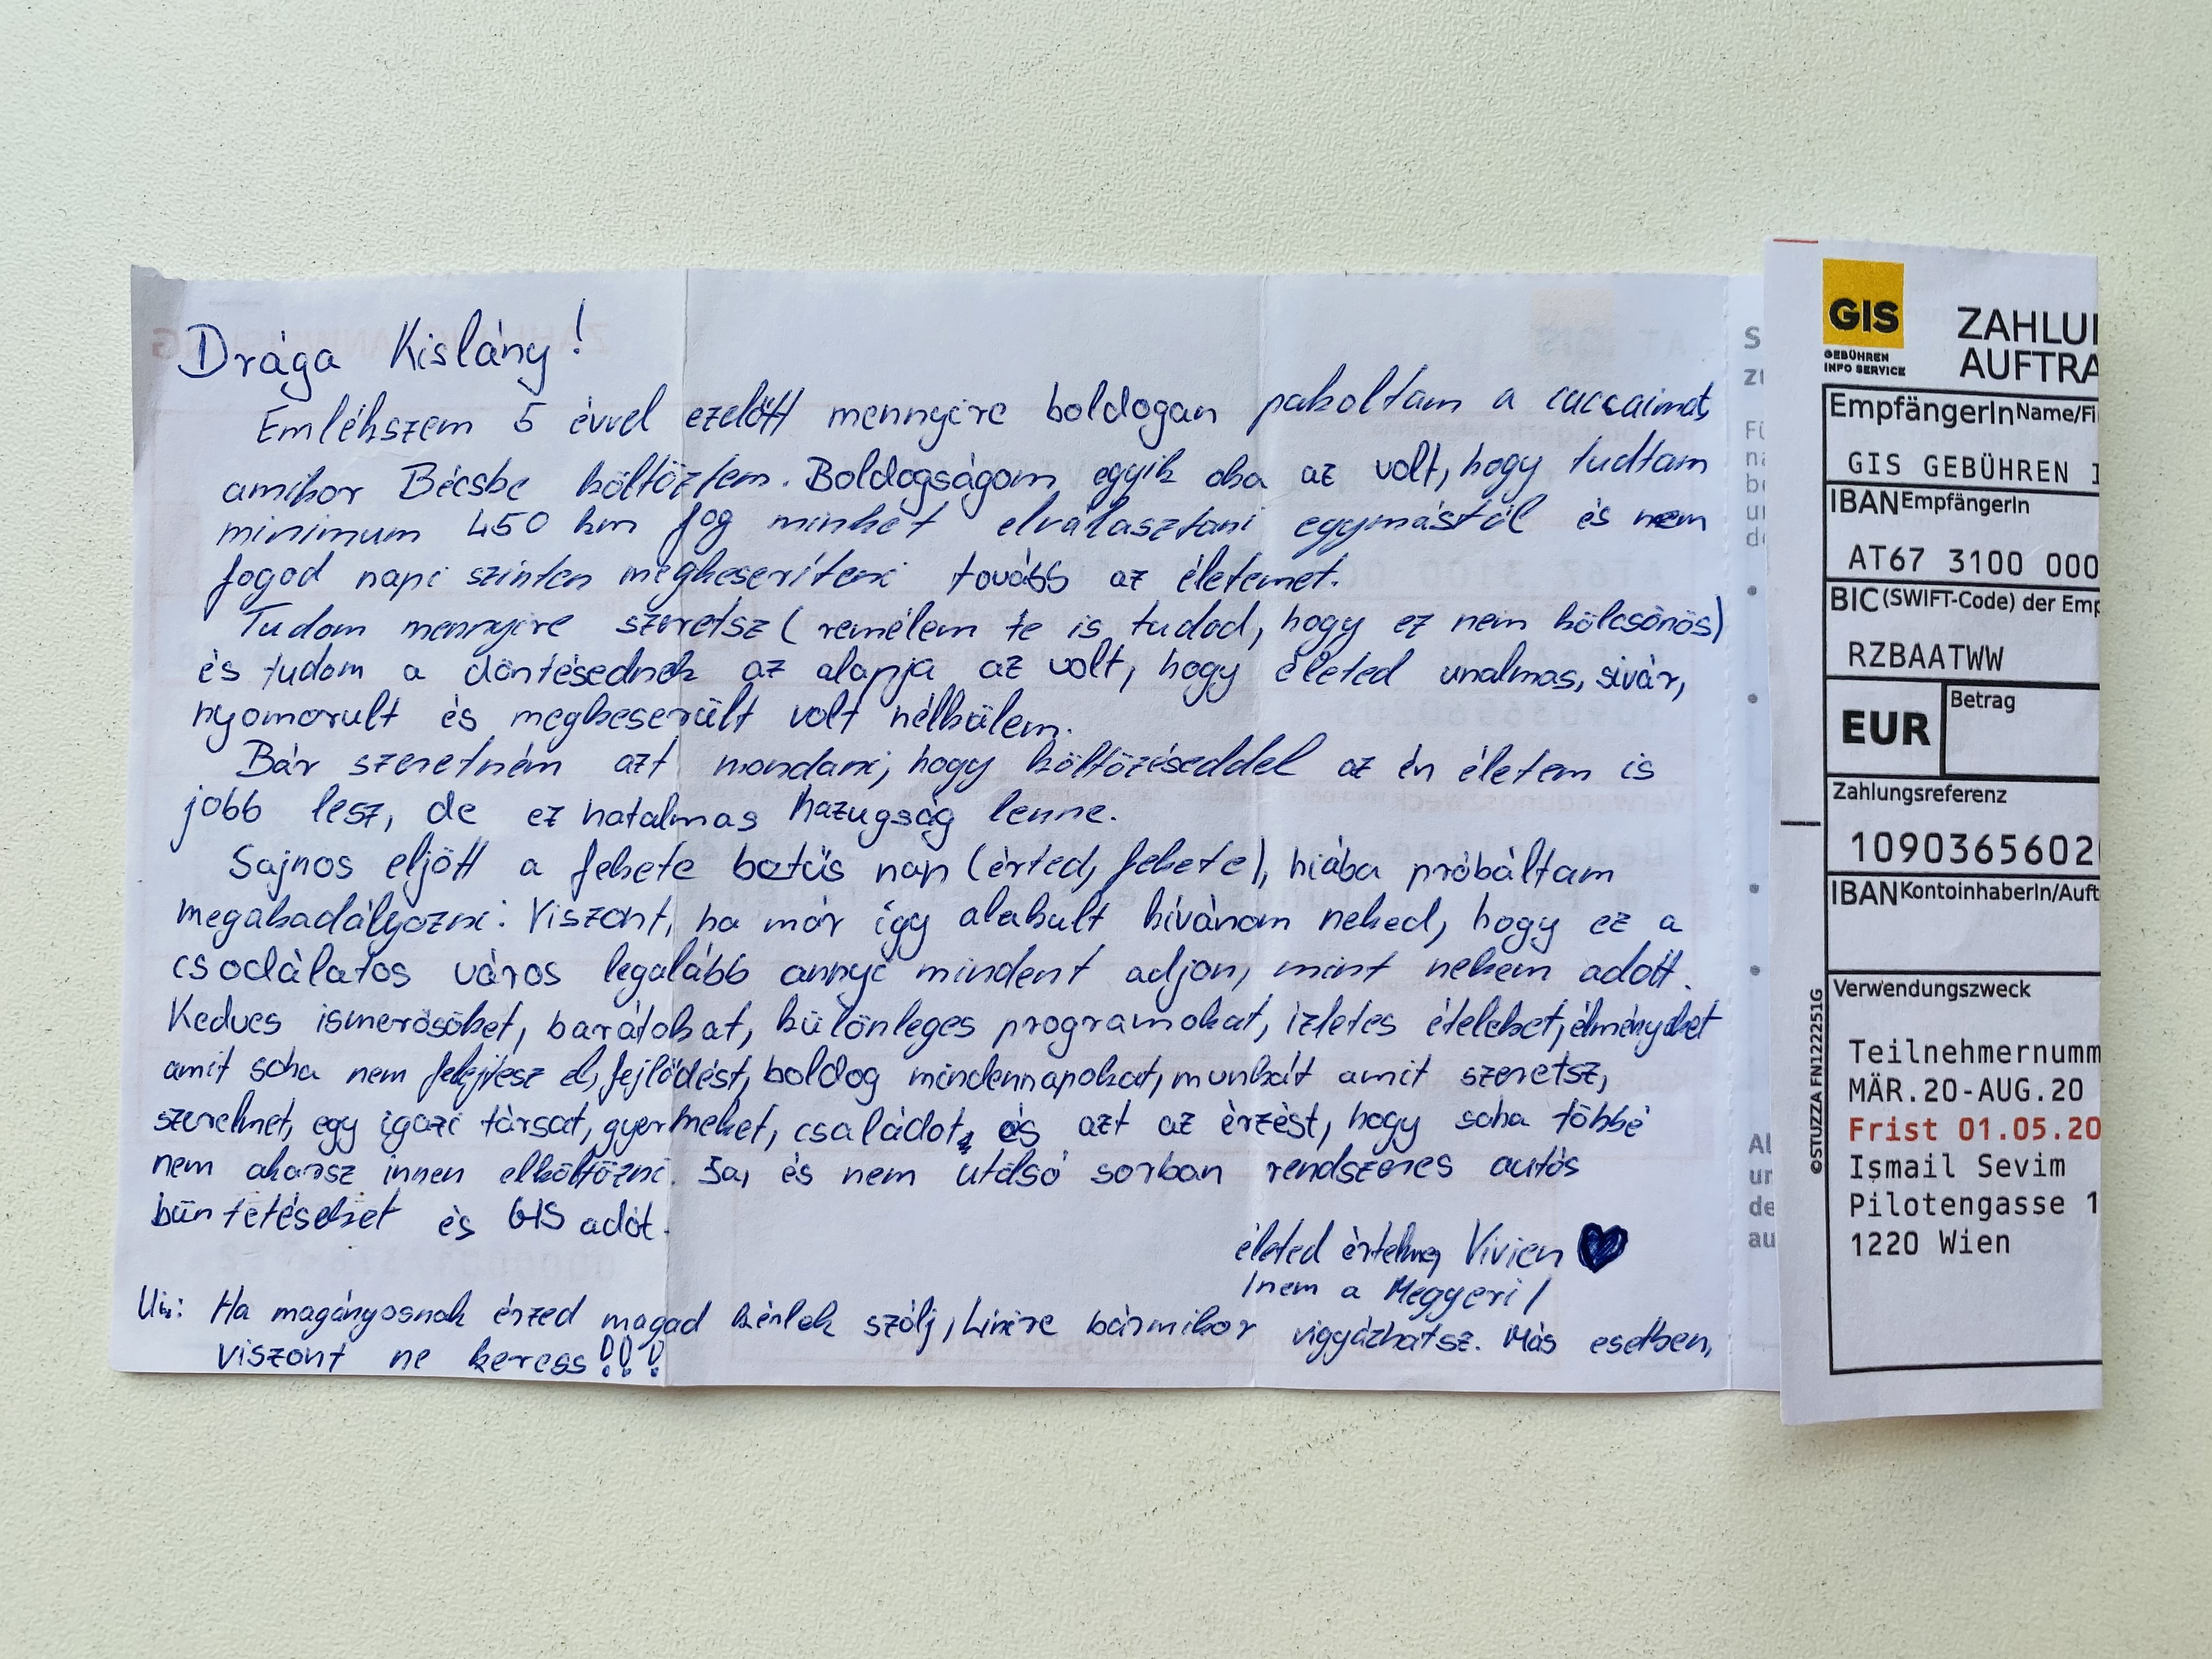 Drága Kislány!
Emlékszem 5 évvel ezelőtt mennyire boldogan pakoltam a cuccaimat,
amikor Bécsbe költöztem. Boldogságom egyik oka az volt, hogy tudtam
minimum 450 km fog minket elválasztani egymástól és nem
fogod napi szinten megkeseríteni tovább az életemet.
Tudom mennyire szeretsz (remélem te is tudod, hogy ez nem kölcsönös)
és tudom a döntésednek az alapja az volt, hogy életed unalmas, sivár,
nyomorult és megkeserült volt nélkülem.
Bár szeretném azt mondani, hogy költözéseddel az én életem is
jobb lesz, de ez hatalmas hazugság lenne.
Sajnos eljött a fekete betűs nap (érted, fekete), hiába próbáltam
megakadályozni. Viszont, ha már így alakult kívánom neked, hogy ez a
csodálatos város legalább annyi mindent adjon, mint nekem adott.
Kedves ismerősöket, barátokat, különleges programokat, ízletes ételeket, élményeket
amit soha nem felejtesz el, fejlődést, boldog mindennapokat, munkát amit szeretsz,
szerelmet, egy igazi társat, gyermeket, családot, és azt az érzést, hogy soha többé
nem akarsz innen elköltözni. Ja, és nem utolsó sorban rendszeres autós
büntetéseket és GIS adót.
életed értelme, Vivien
/nem a Megyeri/
Ui.: Ha magányosnak érzed magad kérlek szólj, Linire bármikor vigyázhatsz. Más esetben,
viszont ne keress!!!
GIS
GEBÜHREN
INFO SERVICE
ZAHLU
AUFTRA
EmpfängerIn Name/Fi
GIS GEBÜHREN
IBAN EmpfängerIn
AT67 3100 000
BIC (SWIFT-Code) der Emp
RZBAATWW
EUR
Betrag
Zahlungsreferenz
1090365602
IBAN KontoinhaberIn/Auft
Verwendungszweck
Teilnehmernumm
MÄR.20-AUG.20
Frist 01.05.20
Ismail Sevim
Pilotengasse 1
1220 Wien
©STUZZA FN122251G